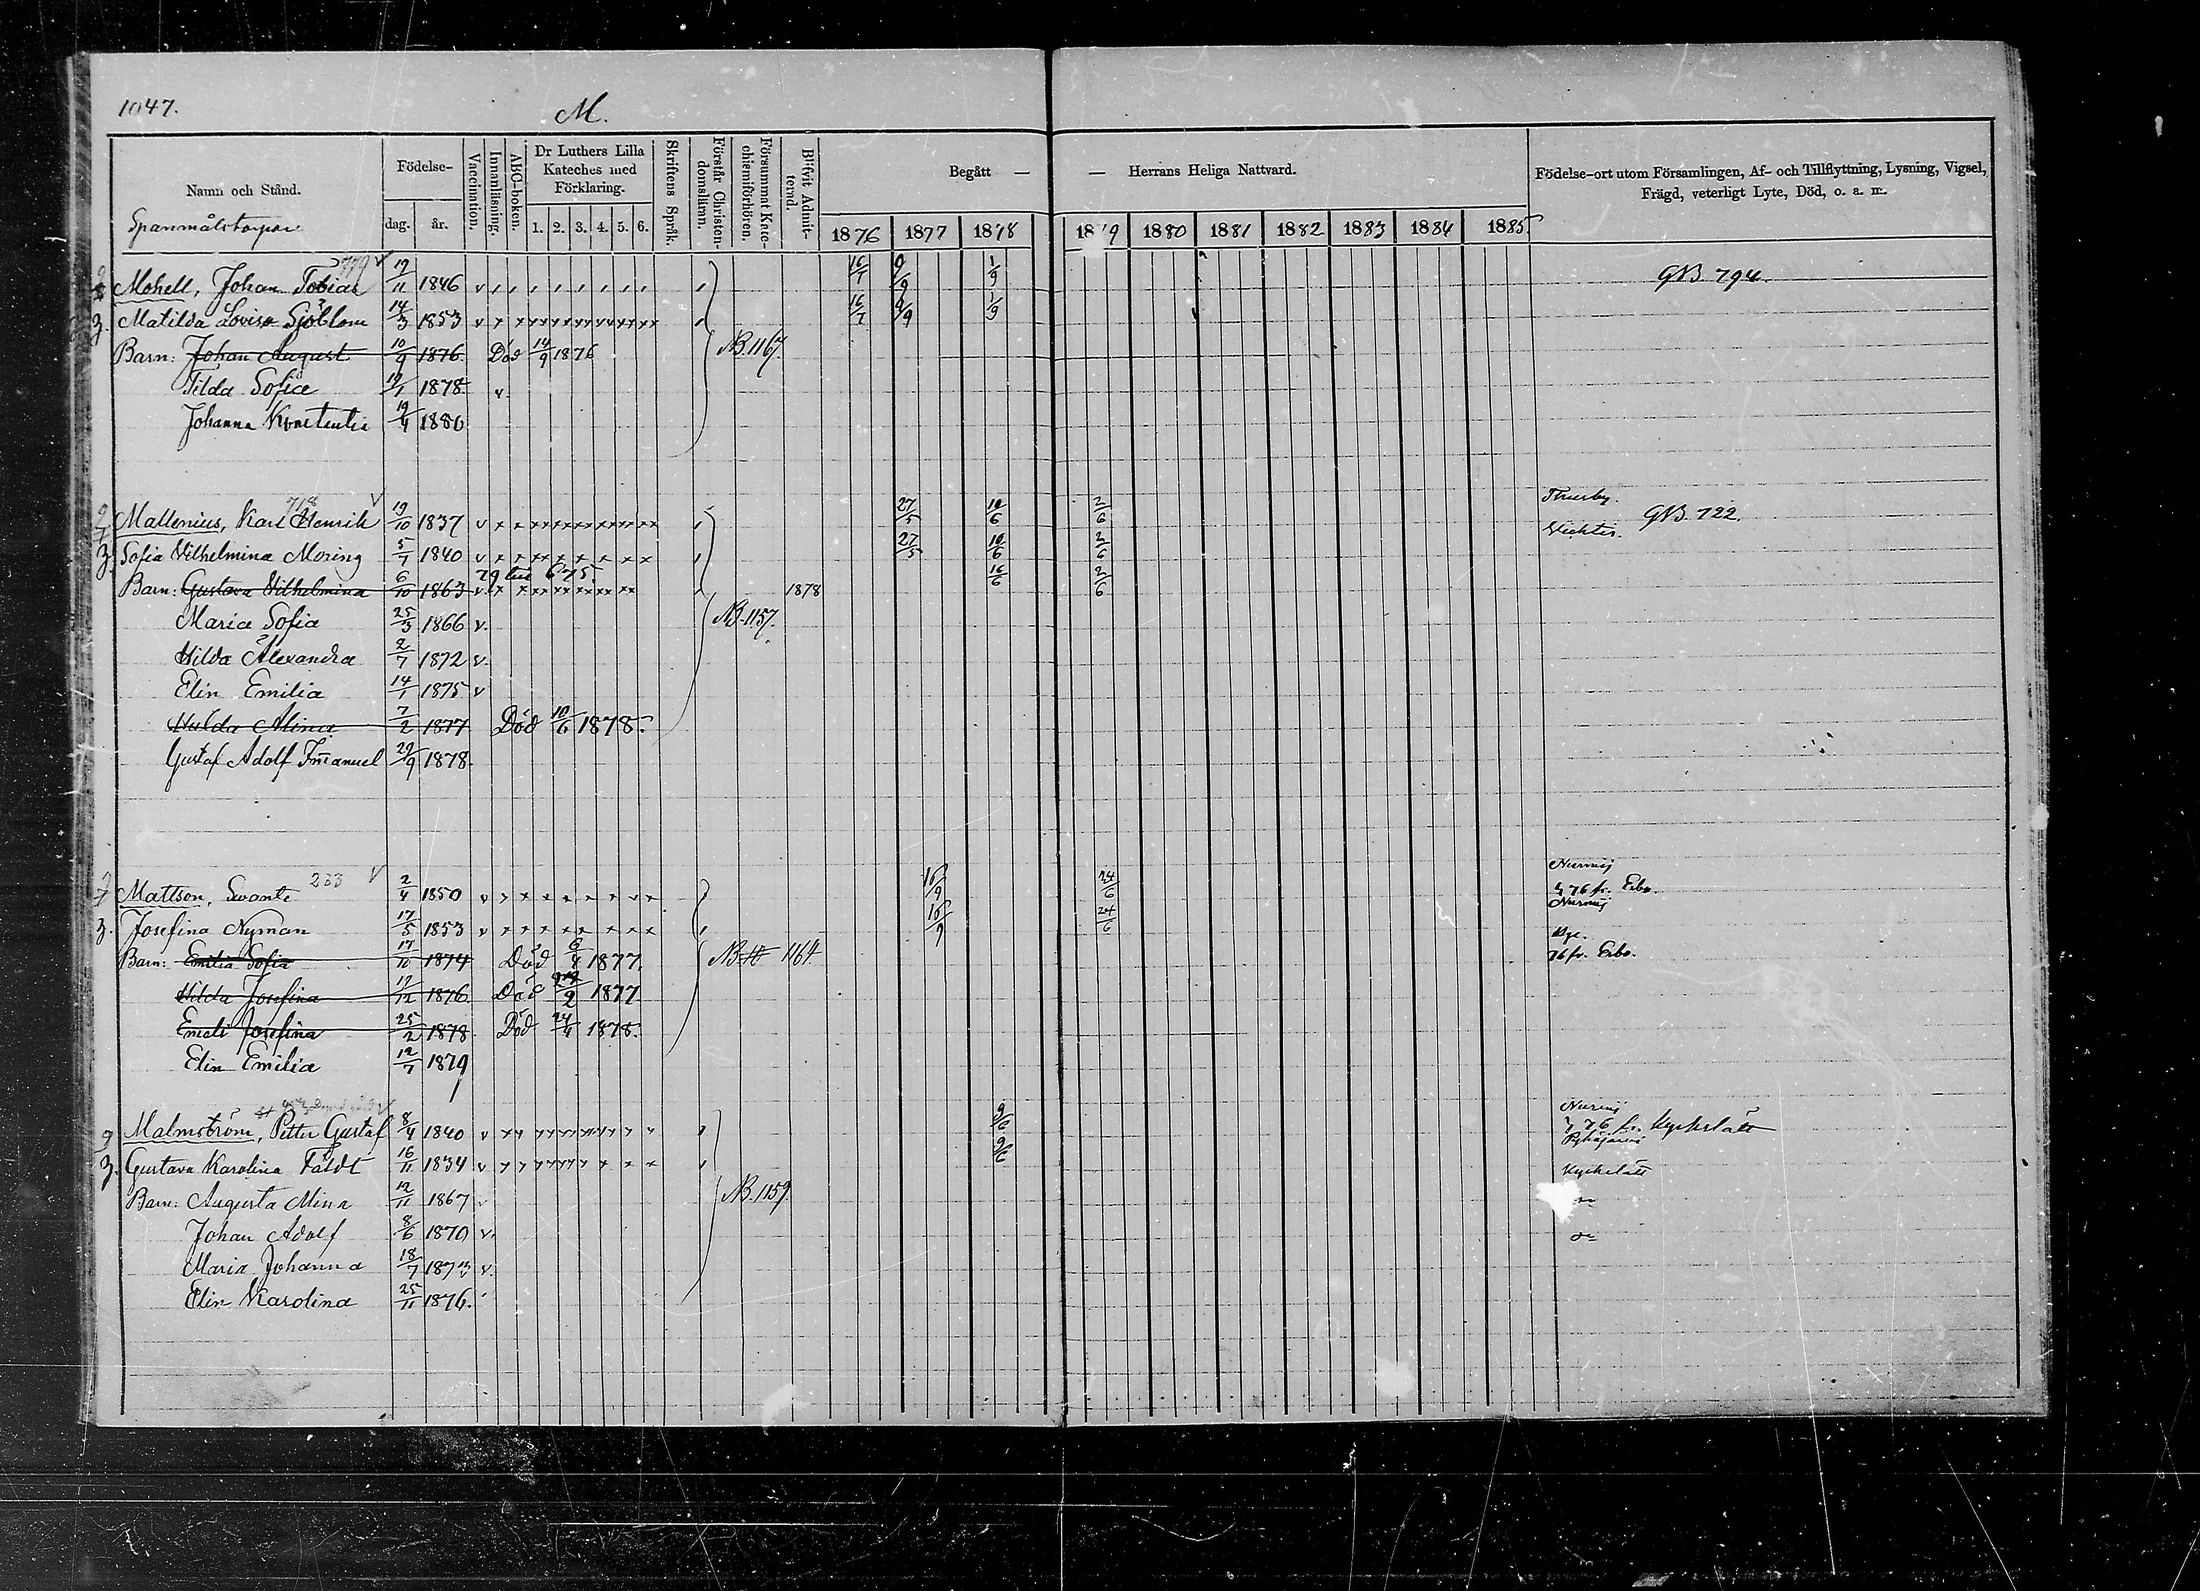 1047.
M.
Namn och Stånd.
Födelse-
dag.
år.
Vaccination.
Innanläsning.
ABC-boken.
Dr Luthers Lilla Kateches med Förklaring.
1. 2. 3. 4. 5. 6.
Skriftens Språk.
Förstår Christendomslärn.
Försummat Katechismiförhören.
Blifvit Admitterad.
Begått — — Herrans Heliga Nattvard.
1876 1877 1878 1879 1880 1881 1882 1883 1884 1885
Födelse-ort utom Församlingen, Af- och Tillflyttning, Lysning, Vigsel, Frägd, veterligt Lyte, Död, o. a. m.
Spanmålstorpar
779
Mohell, Johan Tobias 19/11 1846 16/7 9/9 1/9 GB. 794.
Matilda Lovisa Sjöblom 14/3 1853 16/7 9/9 1/9
Barn: Johan August 10/9 1876 Död 14/9 1876 NB. 1167.
Tilda Sofia 1878
Johanna 19/4 1880
718
Mallenius, Karl Henrik 19/10 1837 27/5 10/6 2/6 Thusby. GB. 722.
Sofia Vilhelmina Moring 5/7 1840 27/5 10/6 2/6 Vichtis.
Barn: Gustava Vilhelmina 6/10 1863 1878 16/6 2/6
Maria Sofia 25/3 1866 NB. 1157.
Hilda Alexandra 2/7 1872
Elin Emilia 14/1 1875
Hulda Alina 7/2 1877 Död 10/6 1878
Gustaf Adolf Im̄anuel 29/9 1878
233
Mattson, Svante 2/4 1850 16/9 24/6 Nurmij. 76 fr. Esbo.
Josefina Nyman 17/5 1853 16/9 24/6 Nurmij
Barn: Emilia Sofia 17/10 1874 Död 6/4 1877. NB 1164. 76 fr. Esbo.
Hilda Josefina 17/12 1876 Död 1877
Emeli Josefina 25/2 1878 Död 24/4 1878.
Elin Emilia 12/7 1879
Malmström, Petter Gustaf 8/4 1840 9/6 Nurmij 76 fr. Kyrkslätt
Gustava Karolina Fäldt 16/11 1834 9/6 Pyhäjärvi
Barn: Augusta Mina 12/11 1867 NB. 1159. Kyrkslätt
Johan Adolf 8/6 1870
Maria Johanna 18/7 1873
Elin Karolina 25/11 1876.